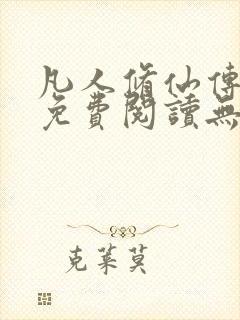 凡人脩仙傳
免費閱讀無
克萊莫